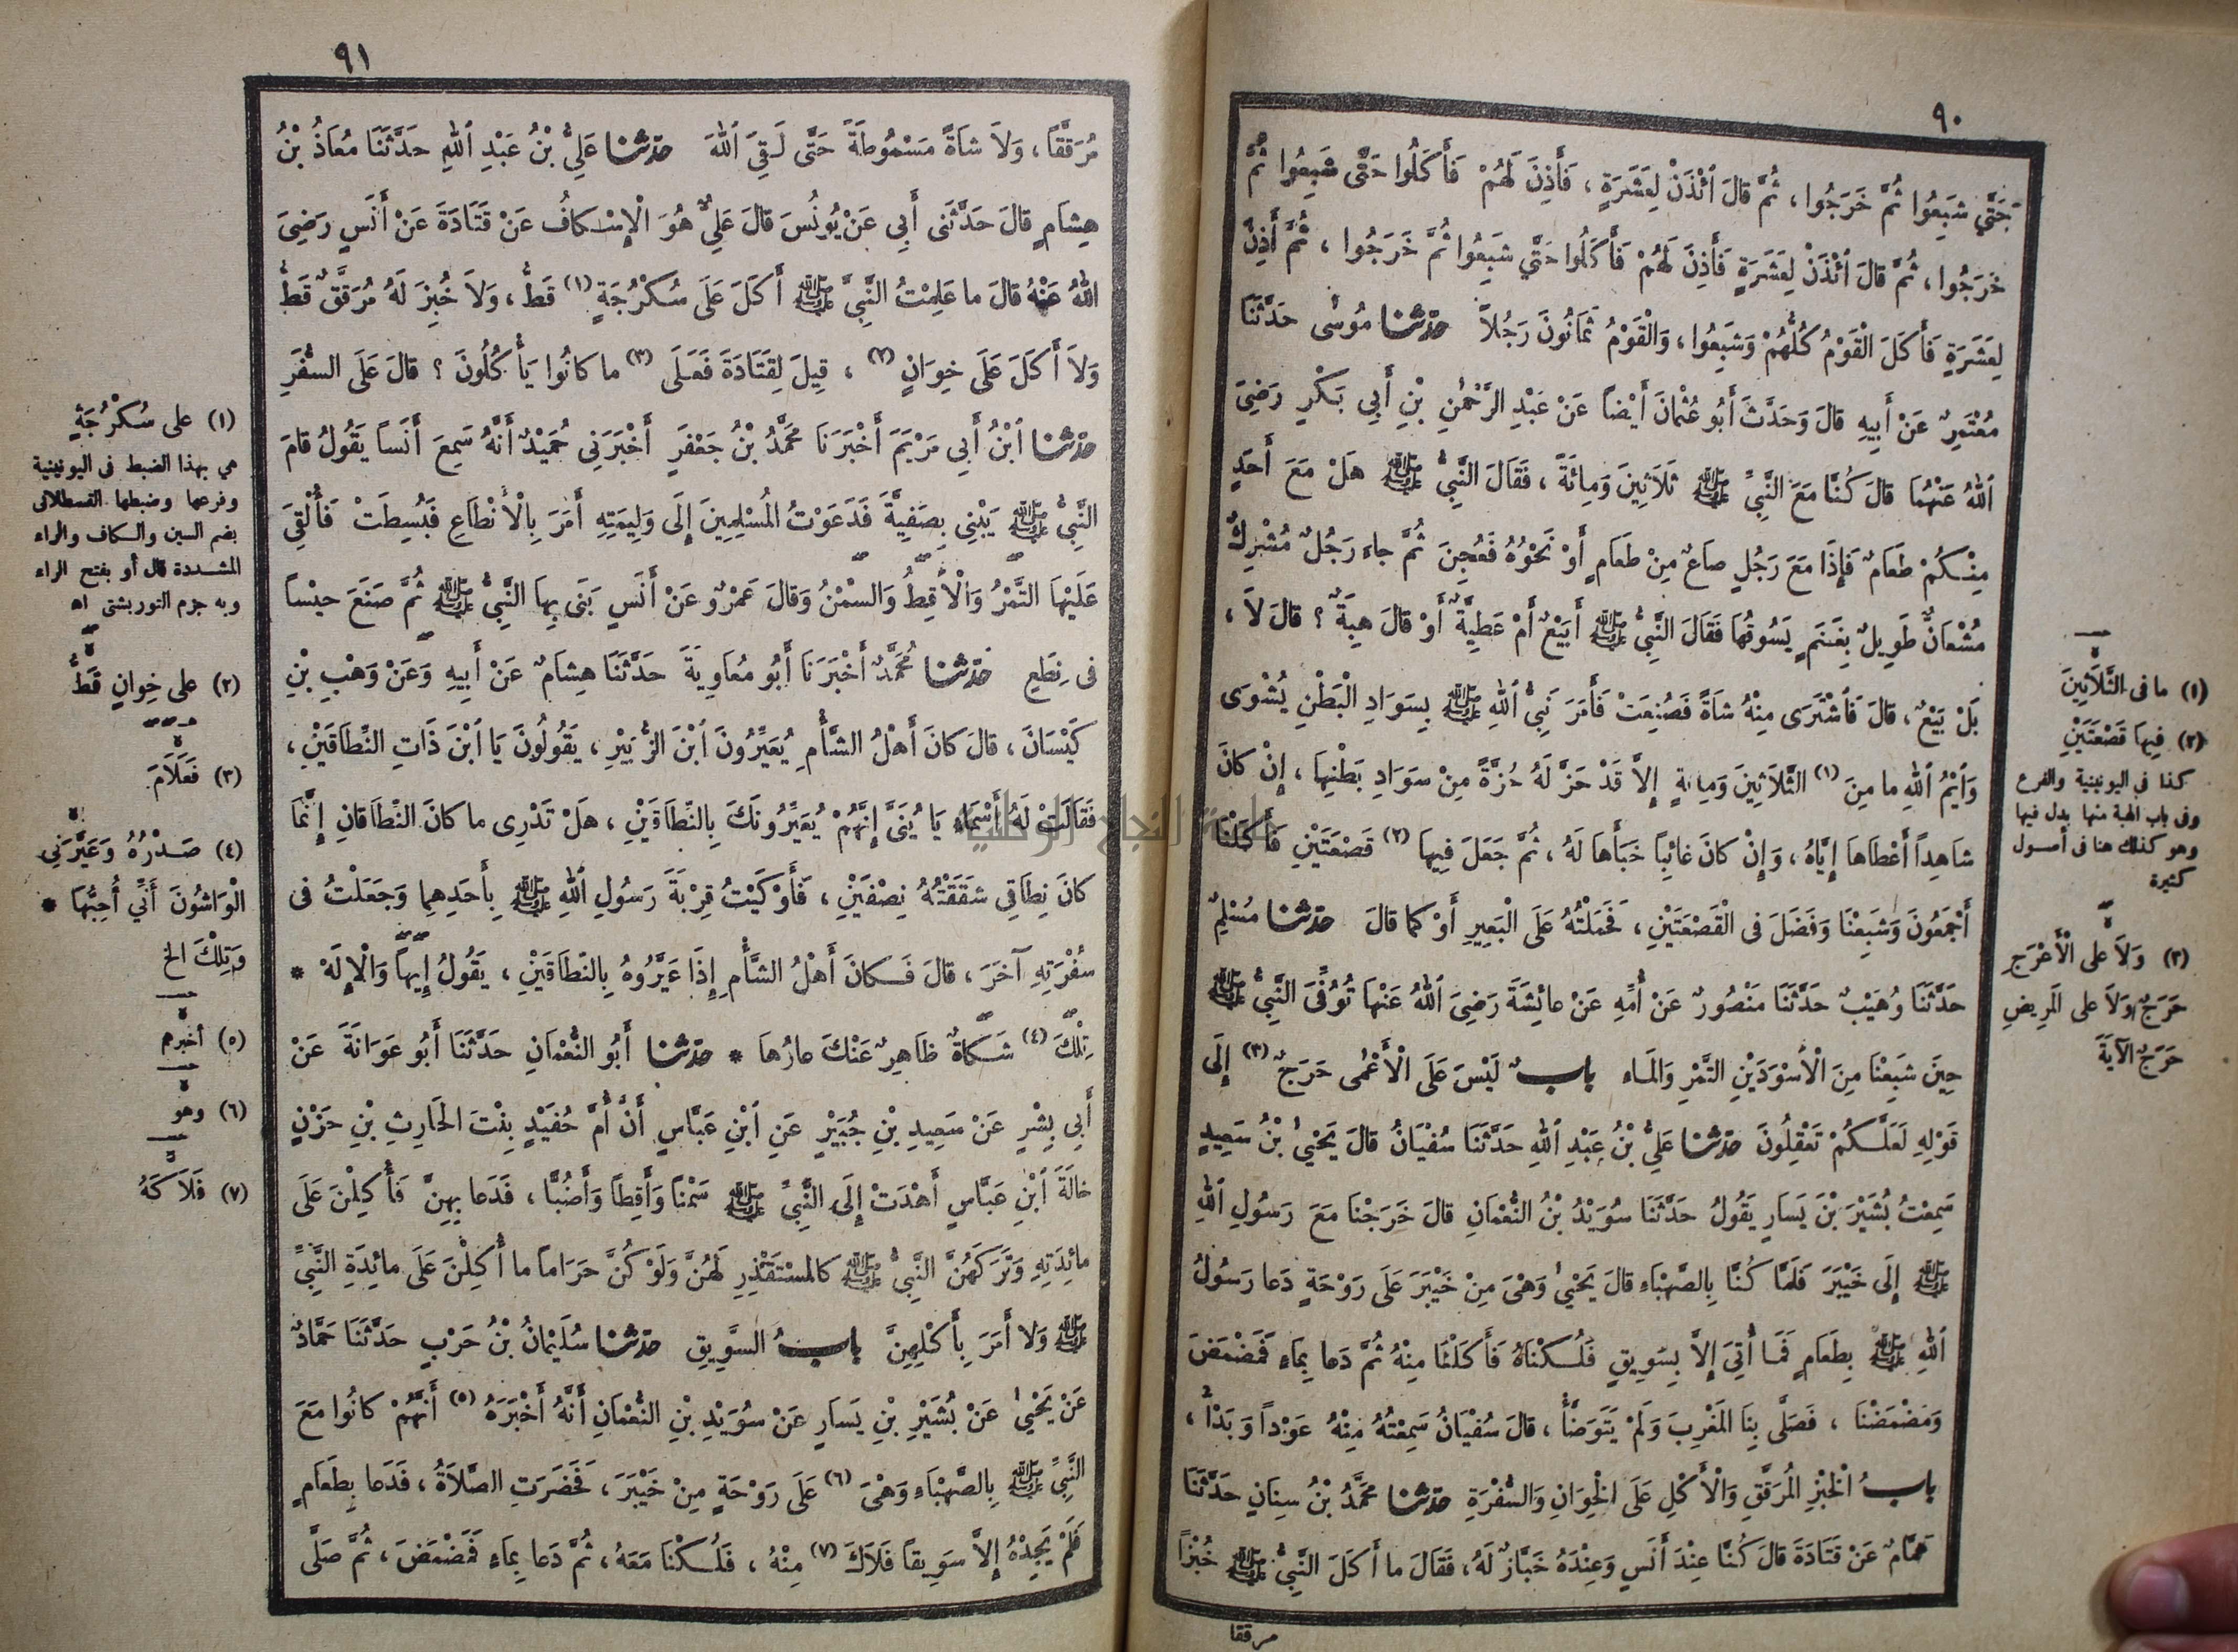 ٩٠
حَتَّى شَبِعُوا ثُمَّ خَرَجُوا ، ثُمَّ قَالَ ٱئْذَنْ لِعَشَرَةٍ ، فَأَذِنَ لَهُمْ فَأَكَلُوا حَتَّى شَبِعُوا ثُمَّ
خَرَجُوا ، ثُمَّ قَالَ ٱئْذَنْ لِعَشَرَةٍ فَأَذِنَ لَهُمْ فَأَكَلُوا حَتَّى شَبِعُوا ثُمَّ خَرَجُوا ، ثُمَّ أَذِنَ
لِعَشَرَةٍ فَأَكَلَ الْقَوْمُ كُلُّهُمْ وَشَبِعُوا ، وَالْقَوْمُ ثَمَانُونَ رَجُلاً حَدَّثَنَا مُوسٰى حَدَّثَنَا
مُعْتَمِرٌ عَنْ أَبِيهِ قَالَ وَحَدَّثَ أَبُو عُثْمَانَ أَيْضاً عَنْ عَبْدِ الرَّحْمٰنِ بْنِ أَبِي بَكْرٍ رَضِيَ
ٱللهُ عَنْهُمَا قَالَ كُنَّا مَعَ النَّبِيِّ ﷺ ثَلَاثِينَ وَمِائَةً ، فَقَالَ النَّبِيُّ ﷺ هَلْ مَعَ أَحَدٍ
مِنْكُمْ طَعَامٌ فَإِذَا مَعَ رَجُلٍ صَاعٌ مِنْ طَعَامٍ أَوْ نَحْوُهُ فَعُجِنَ ثُمَّ جاءَ رَجُلٌ مُشْرِكٌ
مُشْعَانٌّ طَوِيلٌ بِغَنَمٍ يَسُوقُهَا فَقَالَ النَّبِيُّ ﷺ أَبَيْعٌ أَمْ عَطِيَّةٌ أَوْ قَالَ هِبَةٌ ؟ قَالَ لَا ،
بَلْ بَيْعٌ ، قَالَ فَاشْتَرَى مِنْهُ شَاةً فَصُنِعَتْ فَأَمَرَ نَبِيُّ ٱللهِ ﷺ بِسَوَادِ الْبَطْنِ يُشْوَى
وَٱيْمُ ٱللهِ ما مِنَ (١) الثَّلَاثِينَ وَمِائَةٍ إِلاَّ قَدْ حَزَّ لَهُ حُزَّةً مِنْ سَوَادِ بَطْنِهَا ، إِنْ كانَ
شَاهِداً أَعْطَاهَا إِيَّاهُ ، وَإِنْ كانَ غائِباً خَبَأَها لَهُ ، ثُمَّ جَعَلَ فِيهَا (٢) قَصْعَتَيْنِ فَأَكَلْنَا
أَجْمَعُونَ وَشَبِعْنَا وَفَضَلَ فِى الْقَصْعَتَيْنِ ، فَحَمَلْتُهُ عَلَى الْبَعِيرِ أَوْ كما قالَ حَدَّثَنَا مُسْلِمٌ
حَدَّثَنَا وُهَيْبٌ حَدَّثَنَا مَنْصُورٌ عَنْ أُمِّهِ عَنْ عائِشَةَ رَضِيَ ٱللهُ عَنْهَا تُوُفِّيَ النَّبِيُّ ﷺ
حِينَ شَبِعْنَا مِنَ الْأَسْوَدَيْنِ التَّمْرِ وَالْمَاءِ بابٌ لَيْسَ عَلَى الْأَعْمٰى حَرَجٌ (٣) إِلَى
قَوْلِهِ لَعَلَّكُمْ تَعْقِلُونَ حَدَّثَنَا عَلِيُّ بْنُ عَبْدِ ٱللهِ حَدَّثَنَا سُفْيَانُ قالَ يَحْيٰى بْنُ سَعِيدٍ
سَمِعْتُ بُشَيْرَ بْنَ يَسَارٍ يَقُولُ حَدَّثَنَا سُوَيْدُ بْنُ النُّعْمَانِ قالَ خَرَجْنَا مَعَ رَسُولِ ٱللهِ
ﷺ إِلَى خَيْبَرَ فَلَمَّا كُنَّا بِالصَّهْبَاءِ قالَ يَحْيٰى وَهْيَ مِنْ خَيْبَرَ عَلَى رَوْحَةٍ دَعا رَسُولُ
ٱللهِ ﷺ بِطَعَامٍ فَمَا أُتِيَ إِلاَّ بِسَوِيقٍ فَلُكْنَاهُ فَأَكَلْنَا مِنْهُ ثُمَّ دَعا بِمَاءٍ فَمَضْمَضَ
وَمَضْمَضْنَا ، فَصَلَّى بِنَا الْمَغْرِبَ وَلَمْ يَتَوَضَّأْ ، قالَ سُفْيَانُ سَمِعْتُهُ مِنْهُ عَوْداً وَبَدْأً ،
بابُ الْخُبْزِ الْمُرَقَّقِ وَالْأَكْلِ عَلَى الْخِوَانِ وَالسُّفْرَةِ حَدَّثَنَا مُحَمَّدُ بْنُ سِنَانٍ حَدَّثَنَا
هَمَّامٌ عَنْ قَتَادَةَ قالَ كُنَّا عِنْدَ أَنَسٍ وَعِنْدَهُ خَبَّازٌ لَهُ ، فَقَالَ ما أَكَلَ النَّبِيُّ ﷺ خُبْزاً
مرققا
(١) ما فى الثَّلَاثِينَ
(٢) فِيهَا قَصْعَتَيْنِ
كذا في اليونينية والفرع
وفى باب الهبة منها بدل فيها
وهو كذلك هنا فى أصول
كثيرة
(٣) وَلَا على الْأَعْرَجِ
حَرَجٌ وَلَا على الْمَرِيضِ
حَرَجٌ الآيَةَ
٩١
مُرَقَّقاً ، وَلَا شاةً مَسْمُوطَةً حَتَّى لَقِيَ ٱللهَ حَدَّثَنَا عَلِيُّ بْنُ عَبْدِ ٱللهِ حَدَّثَنَا مُعَاذُ بْنُ
هِشَامٍ قالَ حَدَّثَنِى أَبِي عَنْ يُونُسَ قالَ عَلِيٌّ هُوَ الْإِسْكافُ عَنْ قَتَادَةَ عَنْ أَنَسٍ رَضِيَ
ٱللهُ عَنْهُ قالَ ما عَلِمْتُ النَّبِيَّ ﷺ أَكَلَ عَلَى سُكْرُجَةٍ (١) قَطُّ ، وَلَا خُبِزَ لَهُ مُرَقَّقٌ قَطُّ
وَلَا أَكَلَ عَلَى خِوَانٍ (٢) ، قِيلَ لِقَتَادَةَ فَعَلَى (٣) ما كانُوا يَأْكُلُونَ ؟ قالَ عَلَى السُّفَرِ
حَدَّثَنَا ٱبْنُ أَبِي مَرْيَمَ أَخْبَرَنَا مُحَمَّدُ بْنُ جَعْفَرٍ أَخْبَرَنِى حُمَيْدٌ أَنَّهُ سَمِعَ أَنَساً يَقُولُ قامَ
النَّبِيُّ ﷺ يَبْنِى بِصَفِيَّةَ فَدَعَوْتُ الْمُسْلِمِينَ إِلَى وَلِيمَتِهِ أَمَرَ بِالْأَنْطَاعِ فَبُسِطَتْ فَأُلْقِيَ
عَلَيْهَا التَّمْرُ وَالْأَقِطُ وَالسَّمْنُ وَقالَ عَمْرٌو عَنْ أَنَسٍ بَنَى بِهَا النَّبِيُّ ﷺ ثُمَّ صَنَعَ حَيْساً
فِى نِطَعٍ حَدَّثَنَا مُحَمَّدٌ أَخْبَرَنَا أَبُو مُعَاوِيَةَ حَدَّثَنَا هِشَامٌ عَنْ أَبِيهِ وَعَنْ وَهْبِ بْنِ
كَيْسَانَ ، قالَ كانَ أَهْلُ الشَّأْمِ يُعَيِّرُونَ ٱبْنَ الزُّبَيْرِ ، يَقُولُونَ يَا ٱبْنَ ذَاتِ النِّطَاقَيْنِ ،
فَقَالَتْ لَهُ أَسْمَاءُ يَا بُنَيَّ إِنَّهُمْ يُعَيِّرُونَكَ بِالنِّطَاقَيْنِ ، هَلْ تَدْرِى ما كانَ النِّطَاقَانِ إِنَّمَا
كانَ نِطَاقِى شَقَقْتُهُ نِصْفَيْنِ ، فَأَوْكَيْتُ قِرْبَةَ رَسُولِ ٱللهِ ﷺ بِأَحَدِهِما وَجَعَلْتُ فى
سُفْرَتِهِ آخَرَ ، قالَ فَكانَ أَهْلُ الشَّأْمِ إِذَا عَيَّرُوهُ بِالنِّطَاقَيْنِ ، يَقُولُ إِيهاً وَالْإِلَهْ *
تِلْكَ (٤) شَكَاةٌ ظَاهِرٌ عَنْكَ عارُهَا * حَدَّثَنَا أَبُو النُّعْمَانِ حَدَّثَنَا أَبُو عَوَانَةَ عَنْ
أَبِى بِشْرٍ عَنْ سَعِيدِ بْنِ جُبَيْرٍ عَنِ ٱبْنِ عَبَّاسٍ أَنَّ أُمَّ حُفَيْدٍ بِنْتَ الْحَارِثِ بْنِ حَزْنٍ
خالَةَ ٱبْنِ عَبَّاسٍ أَهْدَتْ إِلَى النَّبِيِّ ﷺ سَمْناً وَأَقِطاً وَأَضُبًّا ، فَدَعا بِهِنَّ فَأُكِلْنَ عَلَى
مائِدَتِهِ وَتَرَكَهُنَّ النَّبِيُّ ﷺ كالْمُسْتَقْذِرِ لَهُنَّ وَلَوْ كُنَّ حَرَاماً ما أُكِلْنَ عَلَى مائِدَةِ النَّبِيِّ
ﷺ وَلا أَمَرَ بِأَكْلِهِنَّ بابُ السَّوِيقِ حَدَّثَنَا سُلَيْمَانُ بْنُ حَرْبٍ حَدَّثَنَا حَمَّادٌ
عَنْ يَحْيٰى عَنْ بُشَيْرِ بْنِ يَسَارٍ عَنْ سُوَيْدِ بْنِ النُّعْمَانِ أَنَّهُ أَخْبَرَهُ (٥) أَنَّهُمْ كانُوا مَعَ
النَّبِيِّ ﷺ بِالصَّهْبَاءِ وَهْيَ (٦) عَلَى رَوْحَةٍ مِنْ خَيْبَرَ ، فَحَضَرَتِ الصَّلَاةُ ، فَدَعا بِطَعَامٍ
فَلَمْ يَجِدْهُ إِلاَّ سَوِيقاً فَلَاكَ (٧) مِنْهُ ، فَلُكْنَا مَعَهُ ، ثُمَّ دَعا بِمَاءٍ فَمَضْمَضَ ، ثُمَّ صَلَّى
(١) على سُكْرُجَةٍ
هي بهذا الضبط فى اليونينية
وفرعها وضبطها القسطلانى
بضم السين والكاف والراء
المشددة قال أو بفتح الراء
وبه جزم التوربشتى اه
(٢) على خِوانٍ قَطُّ
(٣) فَعَلَامَ
(٤) صَدْرُهُ وَعَيَّرَنِى
الْوَاشُونَ أَنِّي أُحِبُّهَا *
وَتِلْكَ الخ
(٥) أخبرهم
(٦) وهو
(٧) فَلَاكَهُ
جامعة النجاح الوطنية